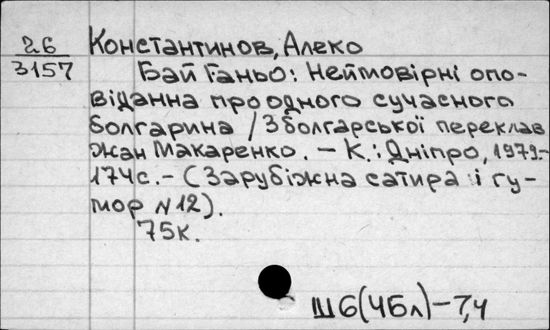 26
3157
Константинов, Алеко
Бай Ганьо: неймовірні опо-
віданна про одного сучасного
болгарина / З болгарської переклав
жан Макаренко. – К.: Дніпро, 1979.–
174с.– (Зарубіжна сатира і гу-
мор №12).
75к.
Ш6(4Бл)–7,4